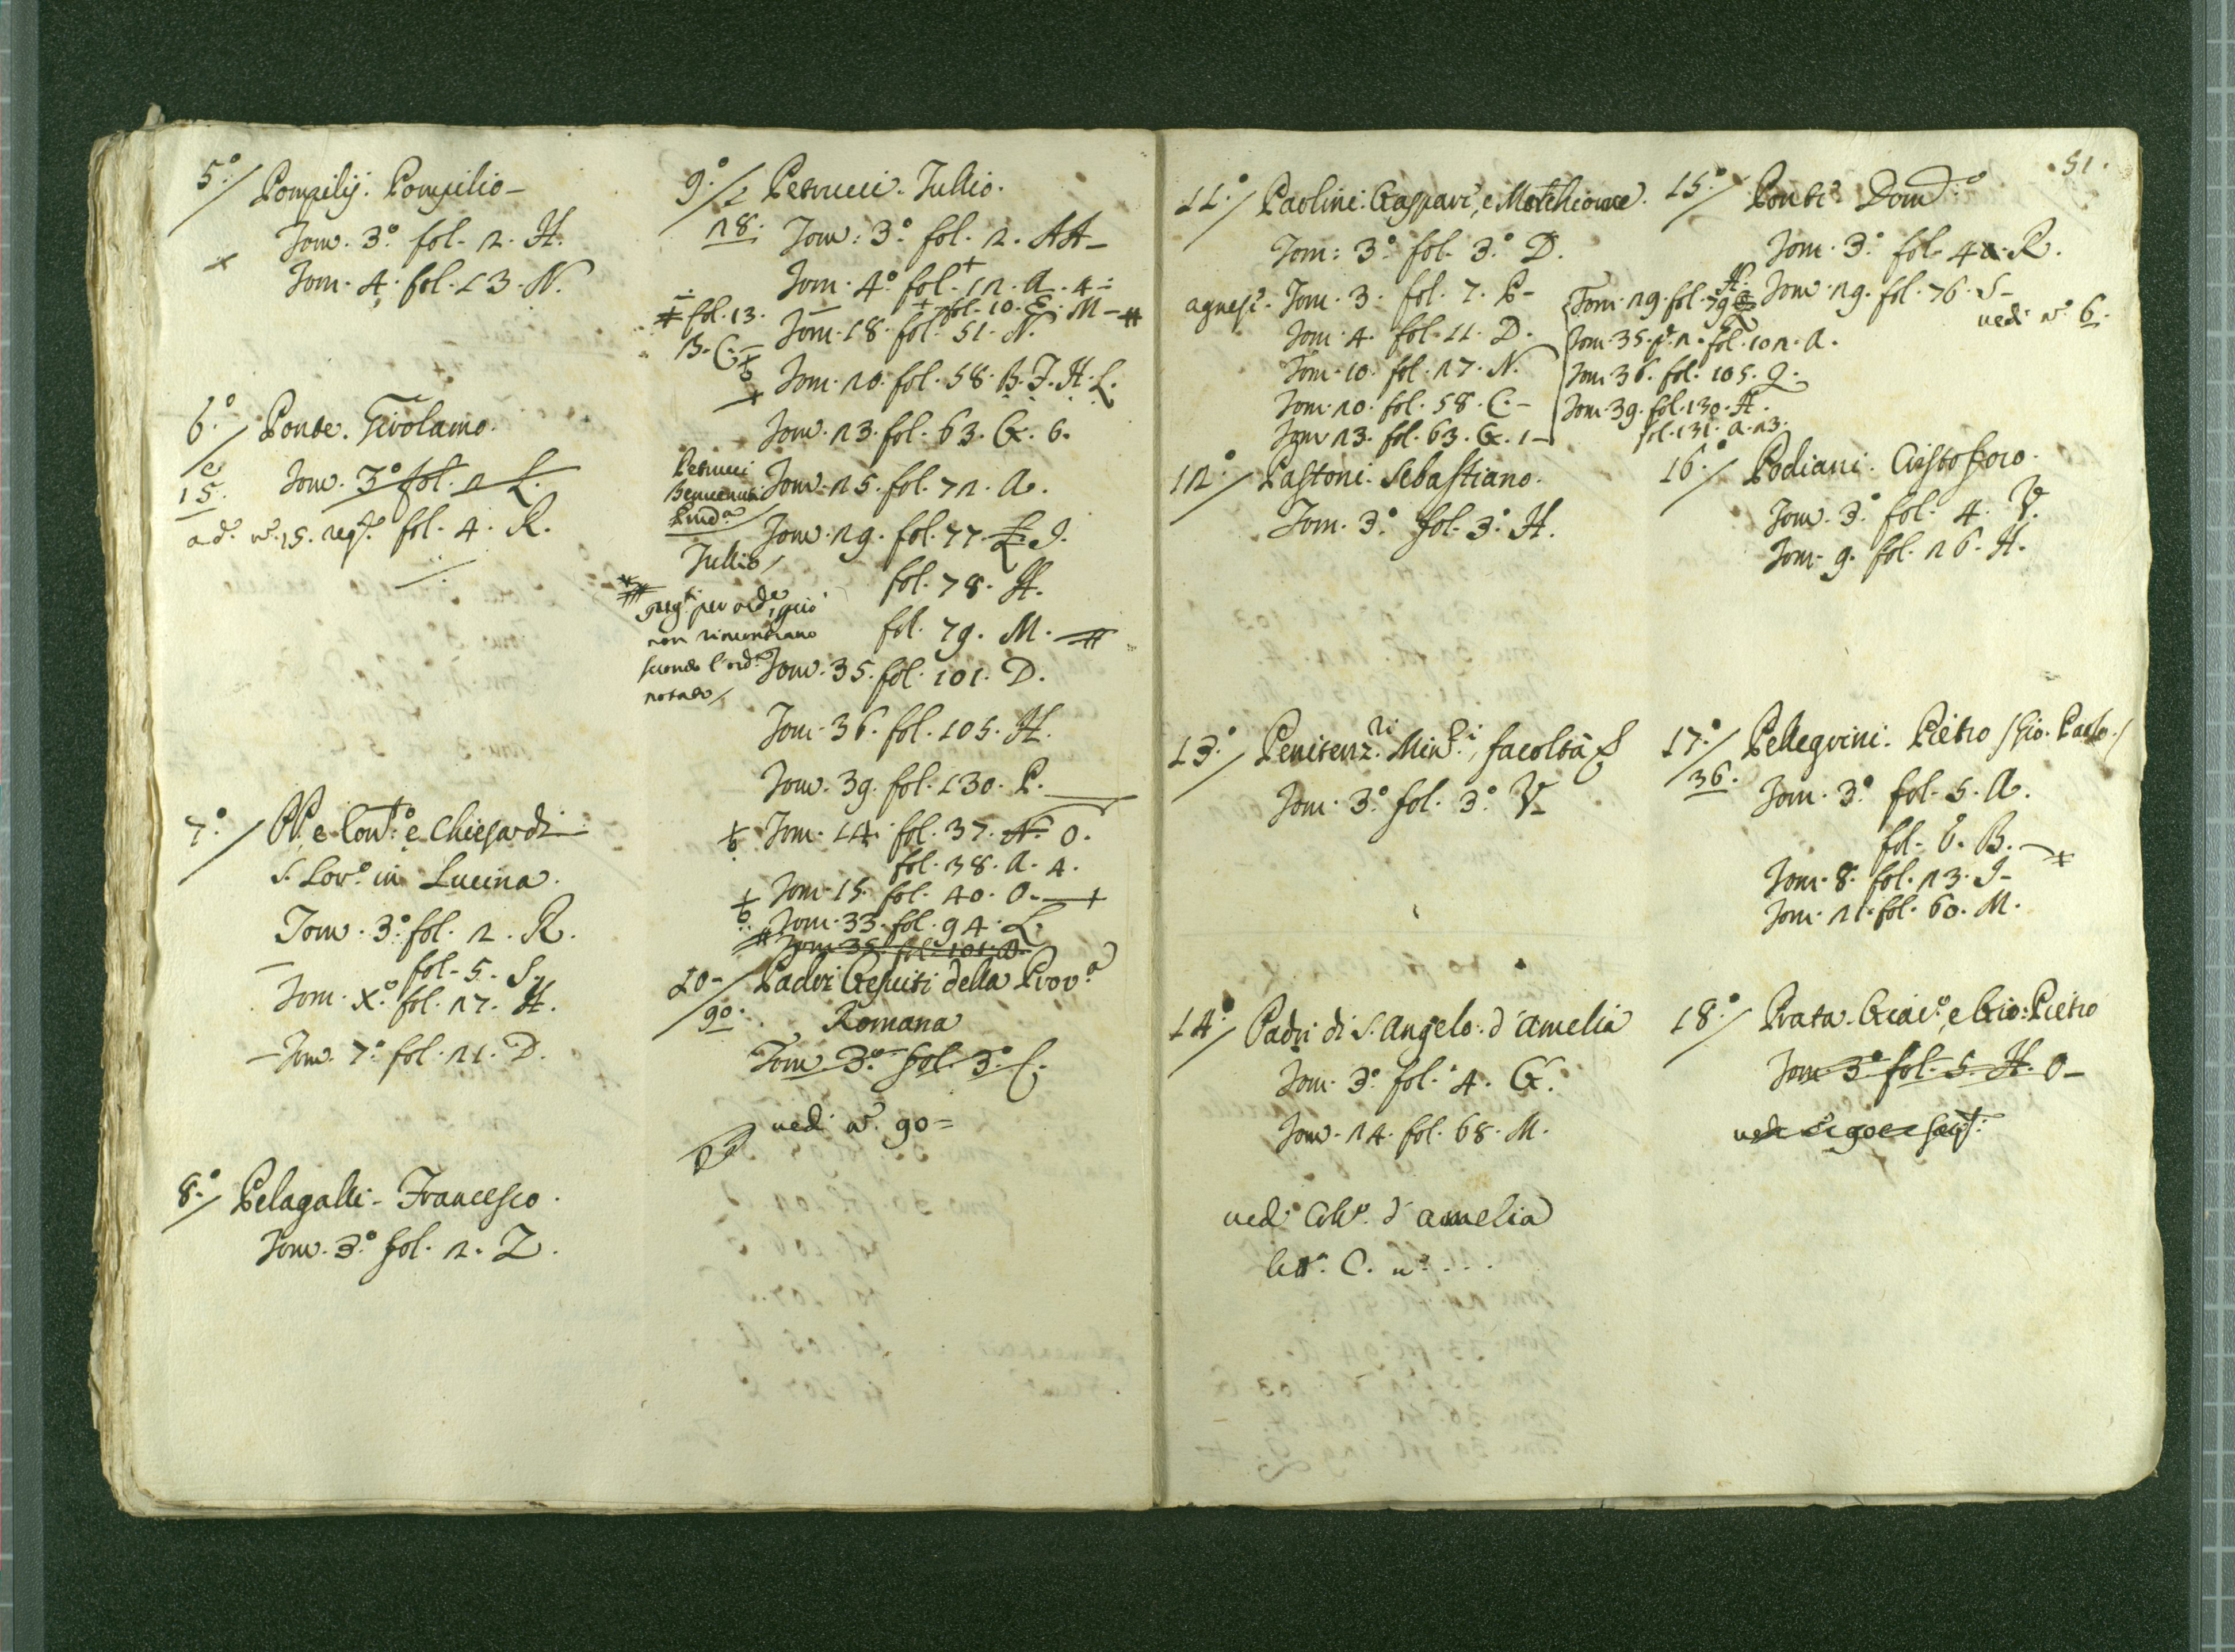 5.º/ Pompilij. Pompilio-
Tom. 3.º fol. 2. H.
Tom. 4. fol. 13. N.
6.º/ Ponte. Girolamo.
e 15.
Tom. 3.º fol. 2. L.
ad. n. 15. fol. 4. R.
7.º/ PP. e Con.to e Chiesa di
S. Lor.º in Lucina.
Tom. 3.º fol. 2. R.
fol. 5. S.
Tom. X.º fol. 27. H.
Tom. 7.º fol. 21. D.
8.º/ Pelagalli. Francesco.
Tom. 3.º fol. 2. Z.
9.º/ Petrucci. Tullio.
28. Tom: 3.º fol. 2. AA-
Tom. 4.º fol. 12. A. 4=
+ fol. 10. E. M-#
# fol. 13. B. C.-
Tom. 18. fol. 51. N.
Tom. 20. fol. 58. B. I. H. L.
Tom. 23. fol. 63. G. 6.
Petrucci
Tom. 25. fol. 72. A.
Tom. 29. fol. 77. L. I.
Tullio/
fol. 78. H.
fol. 79. M. #
per ord.e, che
non rincontrano
secondo l'ord.e
notato/
Tom. 35. fol. 101. D.
Tom. 36. fol. 105. H.
Tom. 39. fol. 130. P.
Tom. 14. fol. 37. N. O.
fol. 38. A. 4.
Tom. 15. fol. 40. O.-+
Tom. 33. fol. 94. L.
Tom. 35. fol. 101. D.
10-/ Padri Gesuiti della Prov.a
90. Romana
Tom. 3.º fol. 3.º C.
ved. n. 90=
51.
11.º/ Paolini. Gaspare, e Melchiorre.
Tom: 3.º fol. 3.º D.
Tom. 3. fol. 7. P-
Tom. 4. fol. 11. D.
Tom. 10. fol. 27. N.
Tom. 20. fol. 58. C.-
Tom. 23. fol. 63. G. 1-
Tom. 29. fol. 79.
Tom. 35. p. 2. fol. 102. A.
Tom. 36. fol. 105. Q.
Tom. 39. fol. 130. H.
fol. 131. A. 23.
12.º/ Pastoni. Sebastiano.
Tom. 3.º fol. 3.º H.
13.º/ Penitenz.ri Min.ri, facoltà &
Tom. 3.º fol. 3.º V-
14.º/ Padri di S. Angelo. d'Amelia
Tom. 3.º fol. 4. G.
Tom. 24. fol. 68. M.
ved. d'Amelia
lett. C. n. . . .
15.º/ Ponte Dom.co
Tom. 3.º fol. 4. R.
Tom. 29. fol. 76. S-
ved. n. 6.
16.º/ Podiani. Cristoforo.
Tom. 3.º fol. 4. V.
Tom. 9. fol. 26. H.
17.º/ Pellegrini. Pietro /Gio. Paolo./
36. Tom. 3.º fol. 5. A.
fol. 6. B.-+
Tom. 8. fol. 23. I-
Tom. 21. fol. 60. M.
18.º/ Prata. Giac.º, e Gio: Pietro
Tom. 3.º fol. 5. H. O-